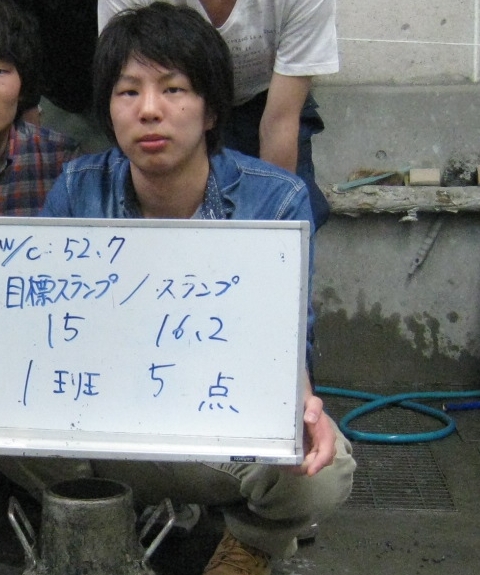 W/C: 52.7
目標スランプ / スランプ
15 16.2
1班 5点